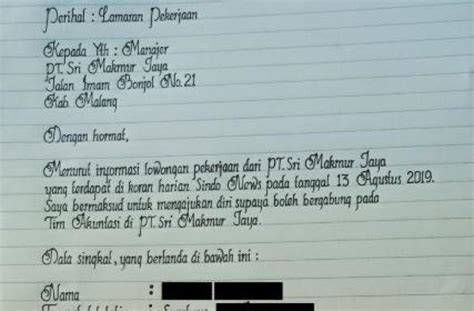 Perihal : Lamaran Pekerjaan
Kepada Yth : Manajer
PT. Sri Makmur Jaya
Jalan Imam Bonjol No. 21
Kab. Malang
Dengan hormat,
Menurut informasi lowongan pekerjaan dari PT. Sri Makmur Jaya
yang terdapat di koran harian Sindo News pada tanggal 13 Agustus 2019.
Saya bermaksud untuk mengajukan diri supaya boleh bergabung pada
Tim Akuntasi di PT. Sri Makmur Jaya.
Data singkat, yang bertanda di bawah ini :
Nama :